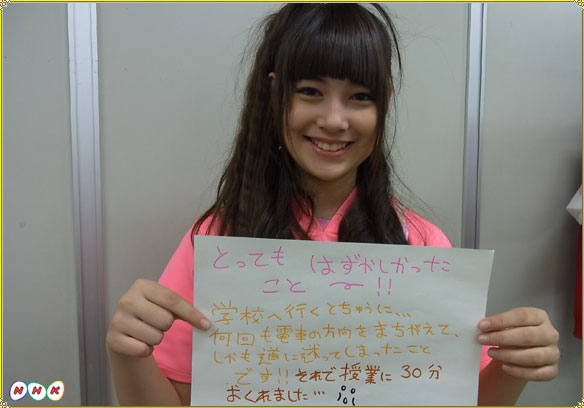 とっても はずかしかった
こと 〜!!
学校へ行くとちゅうに...
何回も電車の方向をまちがえて、
しかも道に迷ってしまったこと
です!! それで授業に 30分
おくれました...
NHK